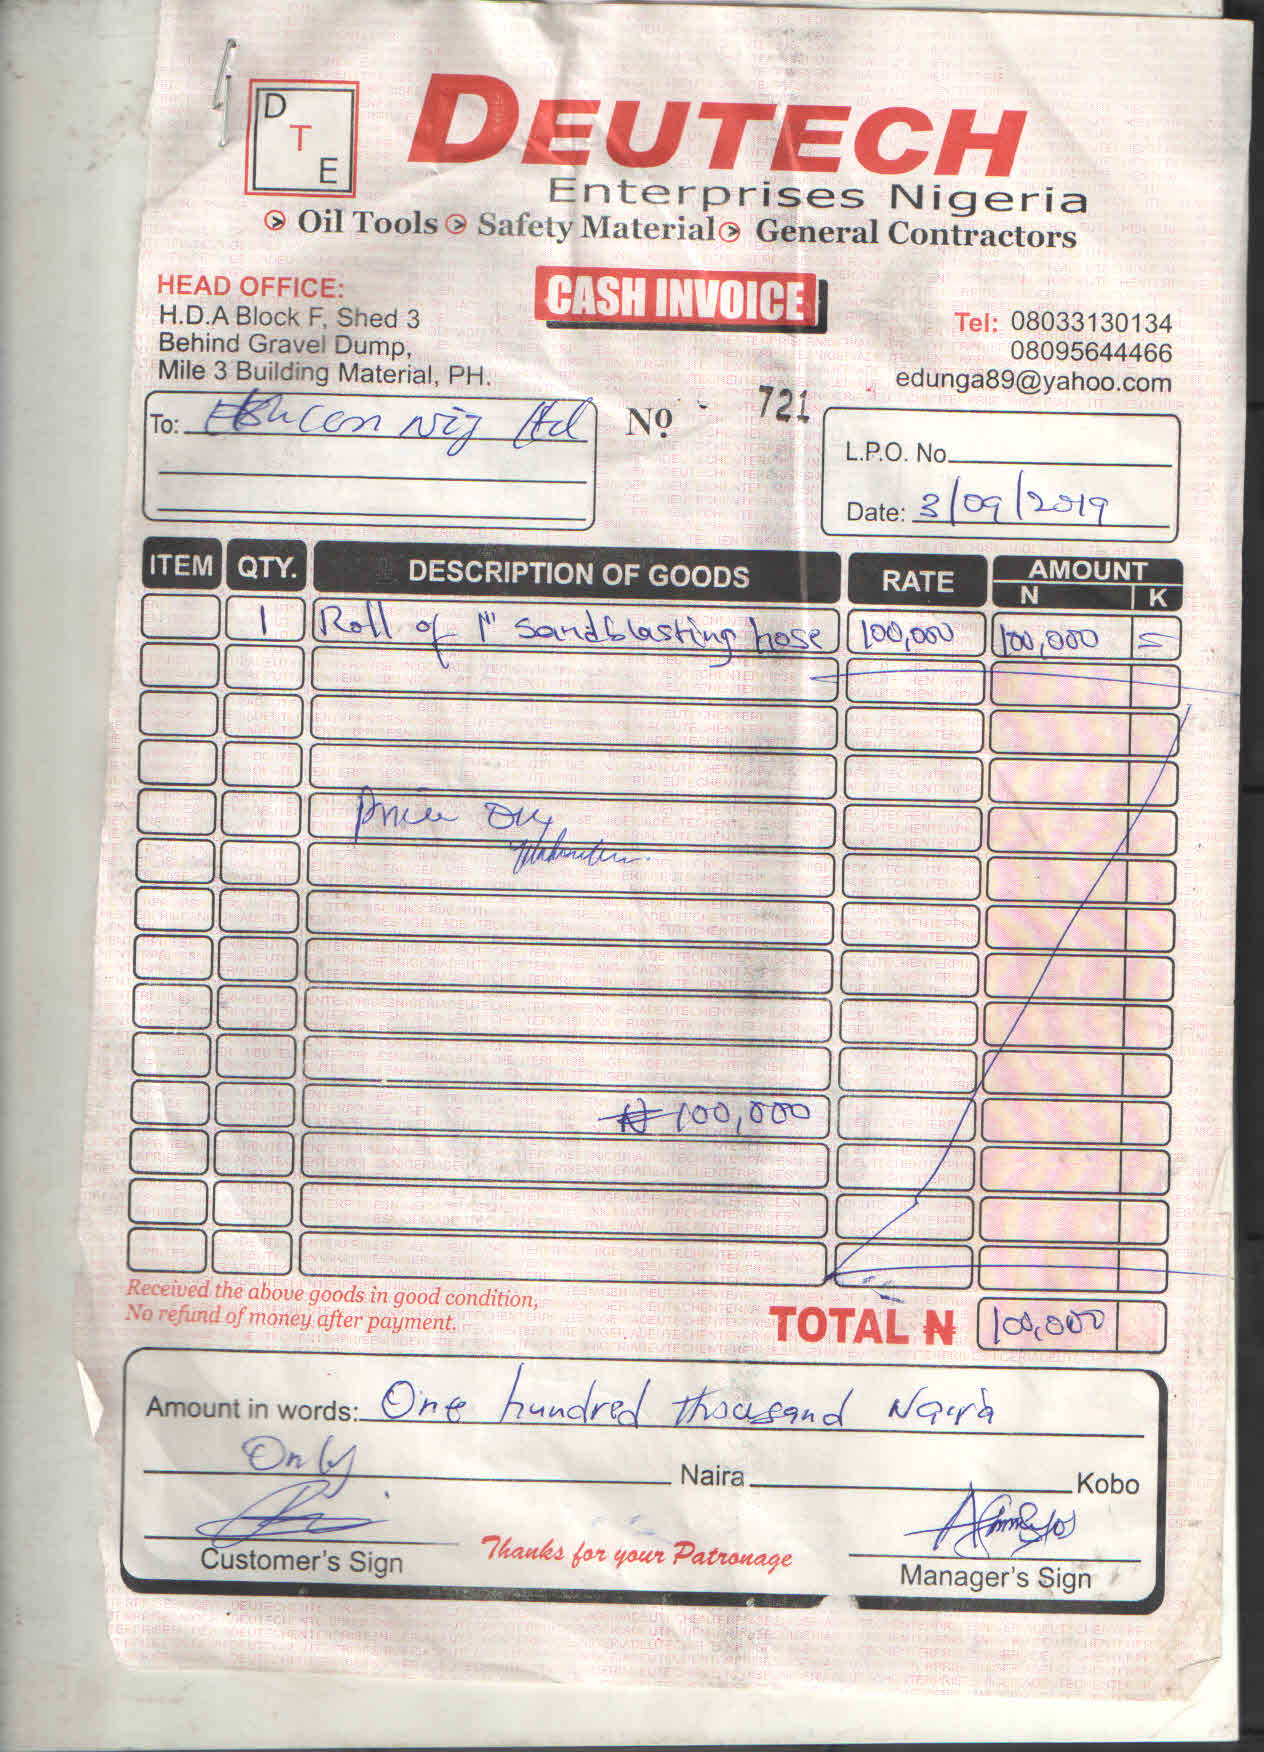 D
T
E
DEUTECH
Enterprises Nigeria
Oil Tools Safety Material General Contractors
CASH INVOICE
HEAD OFFICE:
H.D.A Block F, Shed 3
Behind Gravel Dump,
Mile 3 Building Material, PH.
Tel: 08033130134
08095644466
edunga89@yahoo.com
To: Nig Ltd
No 721
L.P.O. No
Date: 3/09/2019
ITEM QTY. DESCRIPTION OF GOODS RATE AMOUNT
N K
1 Roll of 1" sandblasting hose 100,000 100,000 =
Price
₦ 100,000
Received the above goods in good condition,
No refund of money after payment.
TOTAL ₦ 100,000
Amount in words: One hundred thousand Naira
Only Naira Kobo
Customer's Sign
Thanks for your Patronage
Manager's Sign